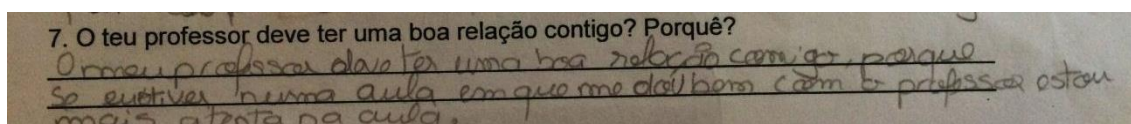 7. O teu professor deve ter uma boa relação contigo? Porquê?
O meu professor deve ter uma boa relação comigo, porque
se eu estiver numa aula em que me dou bem com o professor estou
mais atenta na aula.